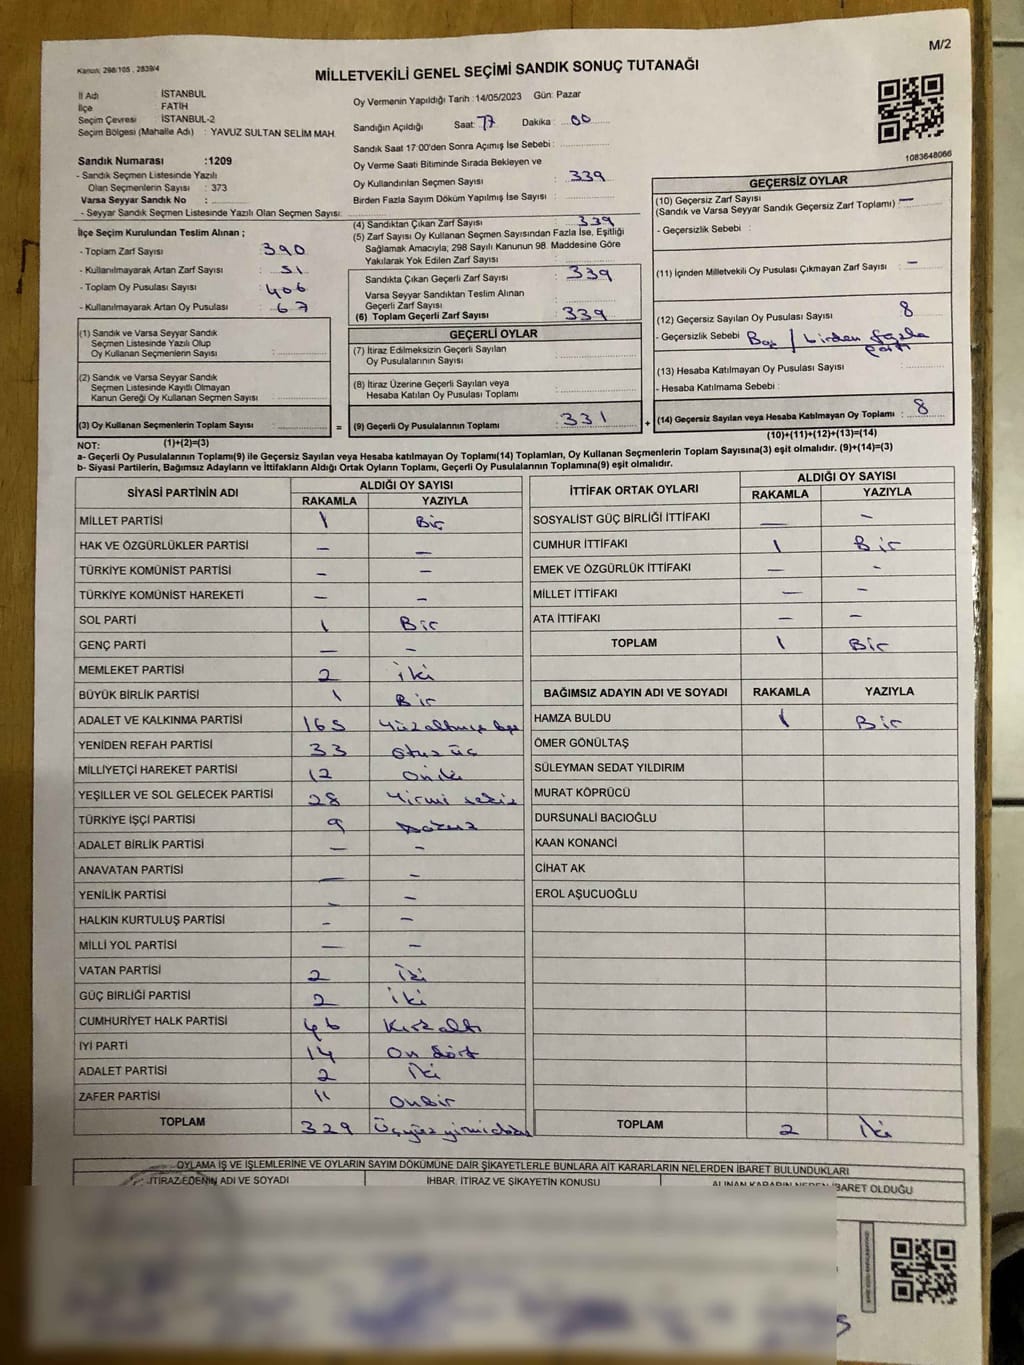 M/2
Kanun: 298/105 , 2839/4
MİLLETVEKİLİ GENEL SEÇİMİ SANDIK SONUÇ TUTANAĞI
İl Adı : İSTANBUL
İlçe : FATİH
Seçim Çevresi : İSTANBUL-2
Seçim Bölgesi (Mahalle Adı) : YAVUZ SULTAN SELİM MAH.
Sandık Numarası :1209
- Sandık Seçmen Listesinde Yazılı
Olan Seçmenlerin Sayısı : 373
Varsa Seyyar Sandık No :
- Seyyar Sandık Seçmen Listesinde Yazılı Olan Seçmen Sayısı:
İlçe Seçim Kurulundan Teslim Alınan ;
- Toplam Zarf Sayısı : 390
- Kullanılmayarak Artan Zarf Sayısı : 51
- Toplam Oy Pusulası Sayısı : 406
- Kullanılmayarak Artan Oy Pusulası : 67
(1) Sandık ve Varsa Seyyar Sandık
Seçmen Listesinde Yazılı Olup
Oy Kullanan Seçmenlerin Sayısı :
(2) Sandık ve Varsa Seyyar Sandık
Seçmen Listesinde Kayıtlı Olmayan
Kanun Gereği Oy Kullanan Seçmen Sayısı :
(3) Oy Kullanan Seçmenlerin Toplam Sayısı :
(1)+(2)=(3)
Oy Vermenin Yapıldığı Tarih :14/05/2023 Gün: Pazar
Sandığın Açıldığı Saat: 17 Dakika : 00
Sandık Saat 17:00'den Sonra Açılmış İse Sebebi :
Oy Verme Saati Bitiminde Sırada Bekleyen ve
Oy Kullandırılan Seçmen Sayısı : 339
Birden Fazla Sayım Döküm Yapılmış İse Sayısı :
(4) Sandıktan Çıkan Zarf Sayısı : 339
(5) Zarf Sayısı Oy Kullanan Seçmen Sayısından Fazla İse, Eşitliği
Sağlamak Amacıyla; 298 Sayılı Kanunun 98. Maddesine Göre
Yakılarak Yok Edilen Zarf Sayısı :
Sandıkta Çıkan Geçerli Zarf Sayısı : 339
Varsa Seyyar Sandıktan Teslim Alınan
Geçerli Zarf Sayısı :
(6) Toplam Geçerli Zarf Sayısı : 339
GEÇERLİ OYLAR
(7) İtiraz Edilmeksizin Geçerli Sayılan
Oy Pusulalarının Sayısı :
(8) İtiraz Üzerine Geçerli Sayılan veya
Hesaba Katılan Oy Pusulası Toplamı :
= (9) Geçerli Oy Pusulalarının Toplamı : 331 +
1083648066
GEÇERSİZ OYLAR
(10) Geçersiz Zarf Sayısı : —
(Sandık ve Varsa Seyyar Sandık Geçersiz Zarf Toplamı)
- Geçersizlik Sebebi :
(11) İçinden Milletvekili Oy Pusulası Çıkmayan Zarf Sayısı : —
(12) Geçersiz Sayılan Oy Pusulası Sayısı : 8
- Geçersizlik Sebebi : Boş / birden fazla
parti
(13) Hesaba Katılmayan Oy Pusulası Sayısı :
- Hesaba Katılmama Sebebi :
(14) Geçersiz Sayılan veya Hesaba Katılmayan Oy Toplamı : 8
(10)+(11)+(12)+(13)=(14)
NOT:
a- Geçerli Oy Pusulalarının Toplamı(9) ile Geçersiz Sayılan veya Hesaba katılmayan Oy Toplamı(14) Toplamları, Oy Kullanan Seçmenlerin Toplam Sayısına(3) eşit olmalıdır. (9)+(14)=(3)
b- Siyasi Partilerin, Bağımsız Adayların ve İttifakların Aldığı Ortak Oyların Toplamı, Geçerli Oy Pusulalarının Toplamına(9) eşit olmalıdır.
SİYASİ PARTİNİN ADI ALDIĞI OY SAYISI
RAKAMLA YAZIYLA
MİLLET PARTİSİ 1 Bir
HAK VE ÖZGÜRLÜKLER PARTİSİ — —
TÜRKİYE KOMÜNİST PARTİSİ — —
TÜRKİYE KOMÜNİST HAREKETİ — —
SOL PARTİ 1 Bir
GENÇ PARTİ — —
MEMLEKET PARTİSİ 2 iki
BÜYÜK BİRLİK PARTİSİ 1 Bir
ADALET VE KALKINMA PARTİSİ 165 Yüzaltmış beş
YENİDEN REFAH PARTİSİ 33 otuz üç
MİLLİYETÇİ HAREKET PARTİSİ 12 on iki
YEŞİLLER VE SOL GELECEK PARTİSİ 28 Yirmi sekiz
TÜRKİYE İŞÇİ PARTİSİ 9 Dokuz
ADALET BİRLİK PARTİSİ — —
ANAVATAN PARTİSİ — —
YENİLİK PARTİSİ — —
HALKIN KURTULUŞ PARTİSİ — —
MİLLİ YOL PARTİSİ — —
VATAN PARTİSİ 2 İki
GÜÇ BİRLİĞİ PARTİSİ 2 iki
CUMHURİYET HALK PARTİSİ 46 Kırk altı
İYİ PARTİ 14 On dört
ADALET PARTİSİ 2 İki
ZAFER PARTİSİ 11 OnBir
TOPLAM 329 Üçyüz yirmidokuz
İTTİFAK ORTAK OYLARI ALDIĞI OY SAYISI
RAKAMLA YAZIYLA
SOSYALİST GÜÇ BİRLİĞİ İTTİFAKI — —
CUMHUR İTTİFAKI 1 Bir
EMEK VE ÖZGÜRLÜK İTTİFAKI — —
MİLLET İTTİFAKI — —
ATA İTTİFAKI — —
TOPLAM 1 Bir
BAĞIMSIZ ADAYIN ADI VE SOYADI RAKAMLA YAZIYLA
HAMZA BULDU 1 Bir
ÖMER GÖNÜLTAŞ
SÜLEYMAN SEDAT YILDIRIM
MURAT KÖPRÜCÜ
DURSUNALİ BACIOĞLU
KAAN KONANCİ
CİHAT AK
EROL AŞUCUOĞLU
TOPLAM 2 İki
OYLAMA İŞ VE İŞLEMLERİNE VE OYLARIN SAYIM DÖKÜMÜNE DAİR ŞİKAYETLERLE BUNLARA AİT KARARLARIN NELERDEN İBARET BULUNDUKLARI
İTİRAZ EDENİN ADI VE SOYADI İHBAR, İTİRAZ VE ŞİKAYETİN KONUSU ALINAN KARARIN NEDEN İBARET OLDUĞU